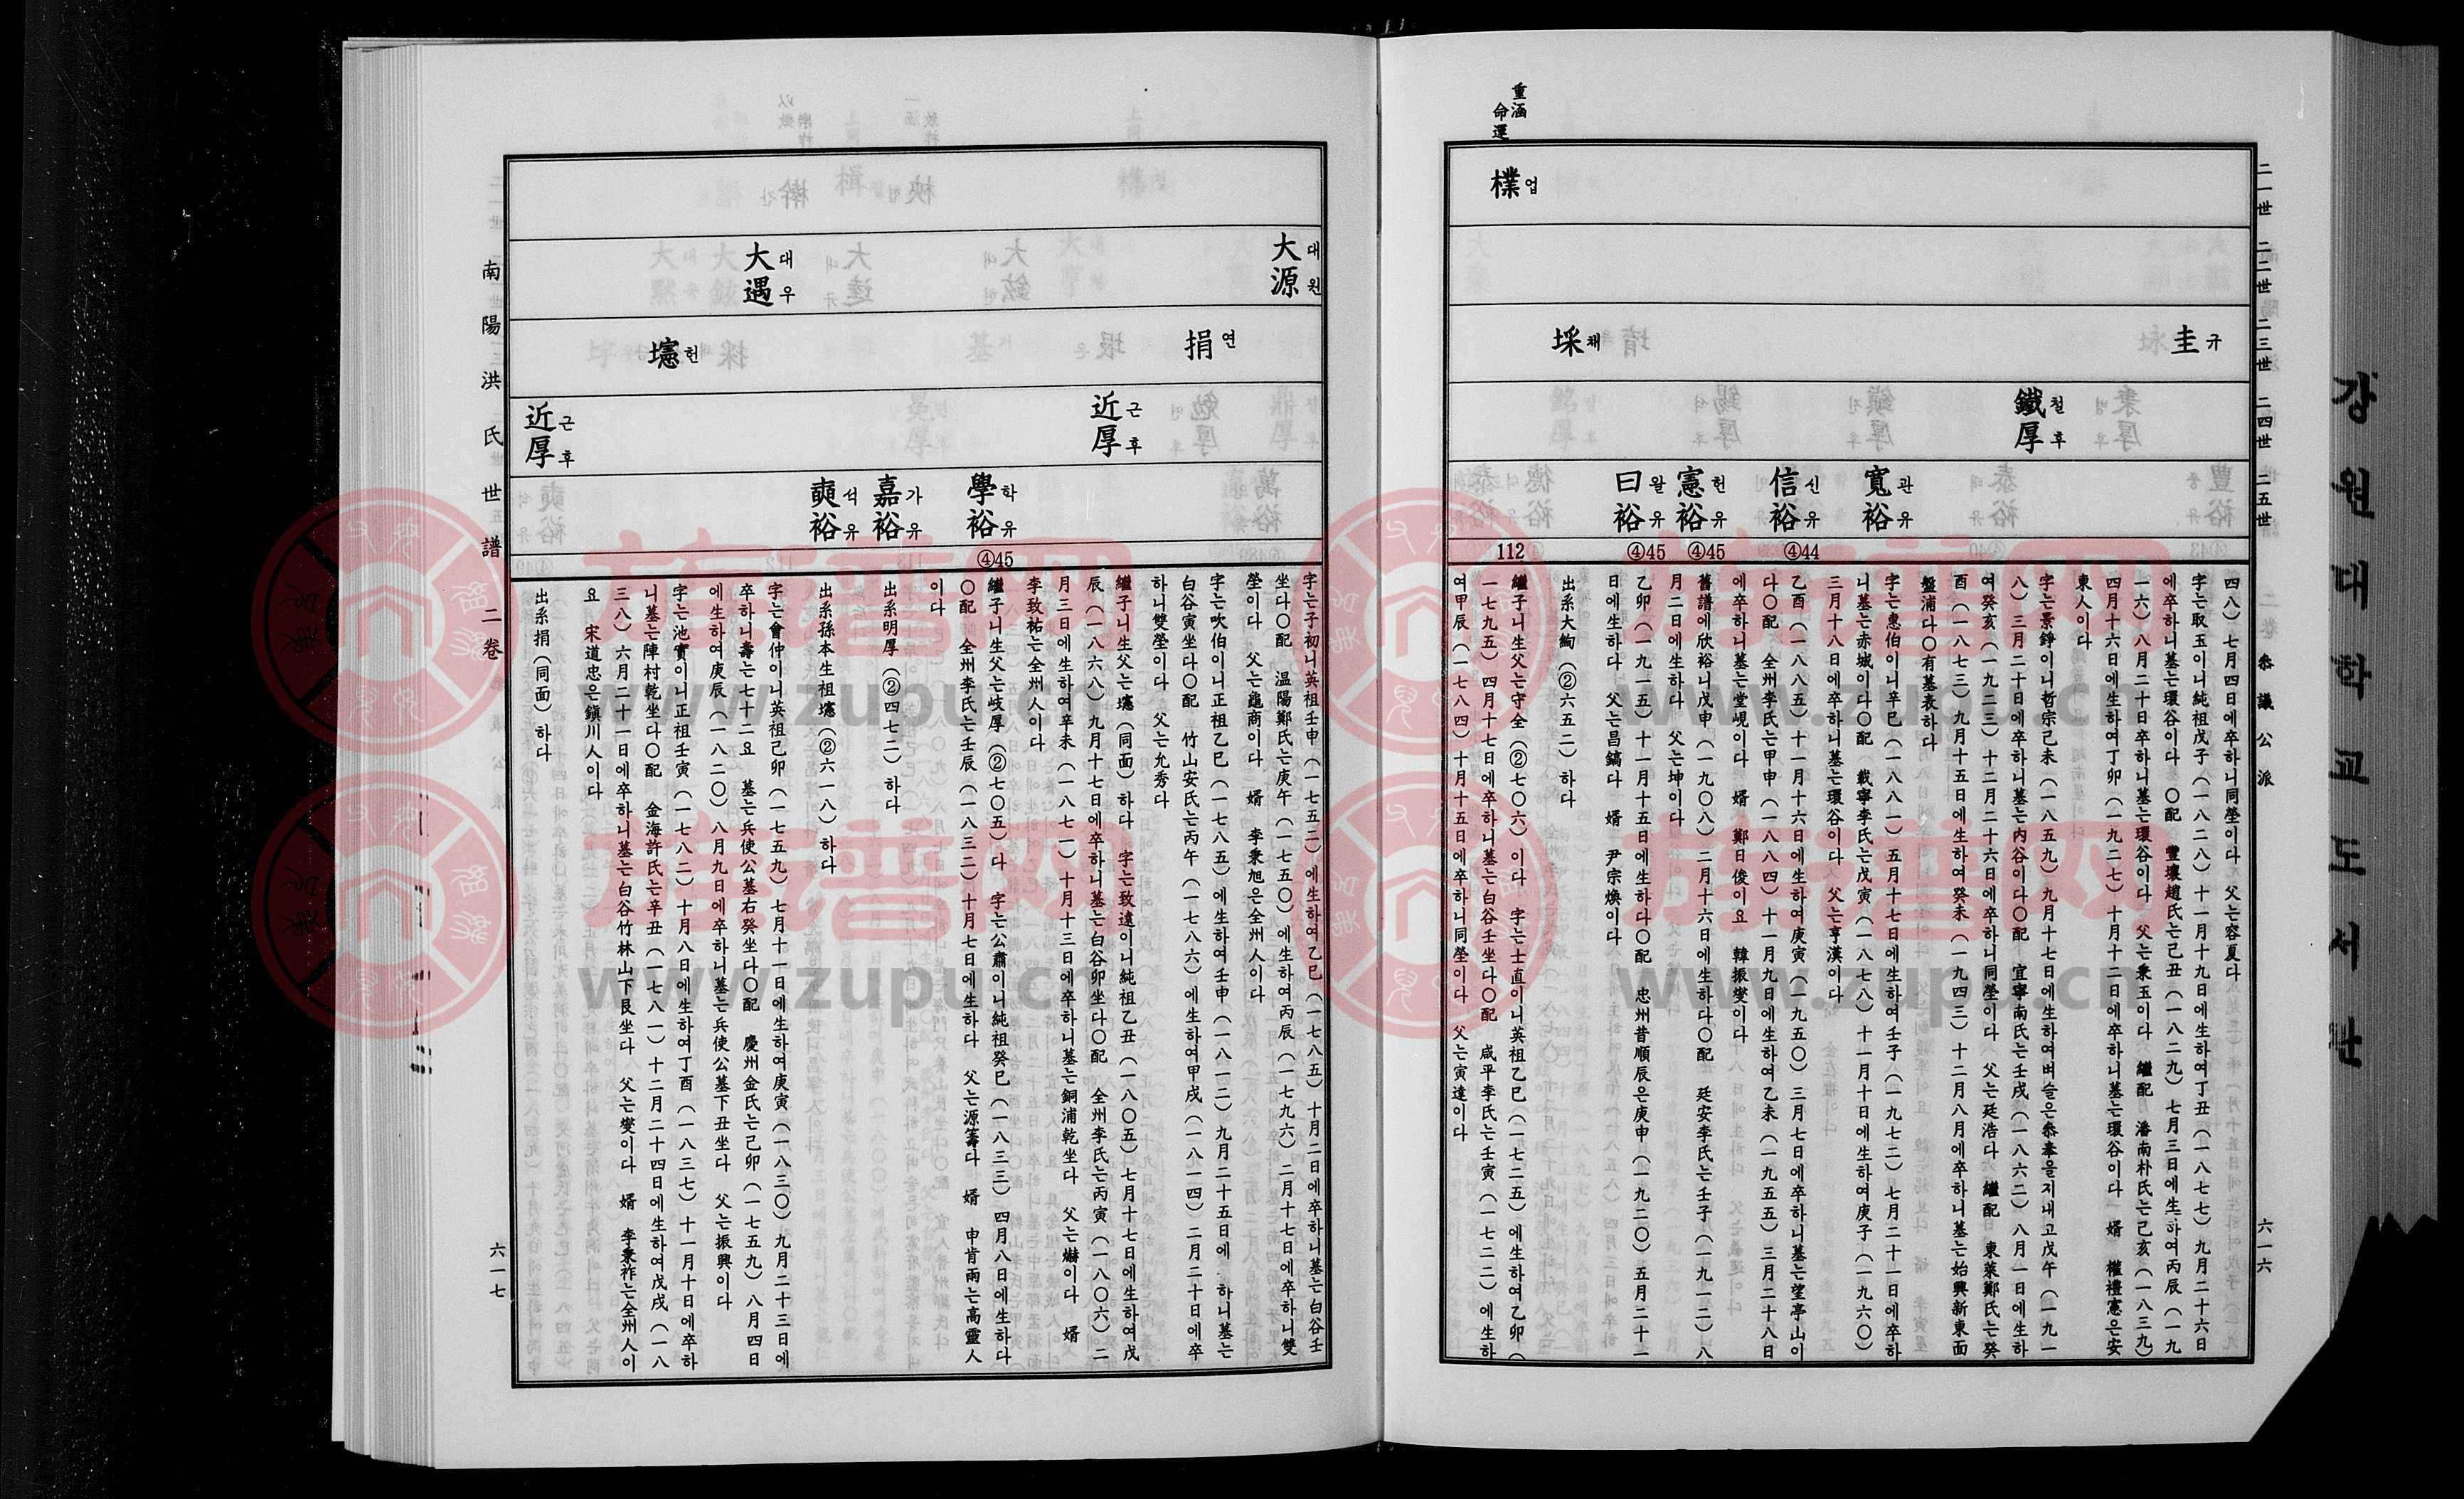 강원대학교도서관
二一世 二二世 二三世 二四世 二五世
參議公派
六一六
重涵
命運
圭 규
鐵厚 철후
寬裕 관유
信裕 신유
④44
憲裕 헌유
④45
曰裕 왈유
④45
埰 채
檏 업
112
四八)七月四日에卒하니同塋이다 父는容夏다
字는取玉이니純祖戊子(一八二八)十一月十九日에生하여丁丑(一八七七)九月二十六日
에卒하니墓는環谷이다 ○配 豐壤趙氏는己丑(一八二九)七月三日에生하여丙辰(一九
一六)八月二十日卒하니墓는環谷이다 父는秉玉이다 繼配 潘南朴氏는己亥(一八三九)
四月十六日에生하여丁卯(一九二七)十月十二日에卒하니墓는環谷이다 婿 權禮憲은安
東人이다
字는景錚이니哲宗己未(一八五九)九月十七日에生하여벼슬은參奉을지내고戊午(一九一
八)三月二十日에卒하니墓는內谷이다○配 宜寧南氏는壬戌(一八六二)八月一日에生하
여癸亥(一九二三)十二月二十六日에卒하니同塋이다 父는廷浩다 繼配 東萊鄭氏는癸
酉(一八七三)九月十五日에生하여癸未(一九四三)十二月八日에卒하니墓는始興新東面
盤浦다○有墓表하다
字는惠伯이니辛巳(一八八一)五月十七日에生하여壬子(一九七二)七月二十一日에卒하
니墓는赤城이다○配 載寧李氏는戊寅(一八七八)十一月十日에生하여庚子(一九六〇)
三月十八日에卒하니墓는環谷이다 父는亨漢이다
乙酉(一八八五)十一月十六日에生하여庚寅(一九五〇)三月七日에卒하니墓는望亭山이
다○配 全州李氏는甲申(一八八四)十一月九日에生하여乙未(一九五五)三月二十八日
에卒하니墓는堂峴이다 婿 鄭日俊이요 韓振燮이다
舊譜에欣裕니戊申(一九〇八)二月十六日에生하다○配 延安李氏는壬子(一九一二)八
月二日에生하다 父는坤이다
乙卯(一九一五)十一月十五日에生하다○配 忠州昔順辰은庚申(一九二〇)五月二十一
日에生하다 父는昌鎬다 婿 尹宗煥이다
出系大絢(②六五二)하다
繼子니生父는守全(②七〇六)이다 字는士直이니英祖乙巳(一七二五)에生하여乙卯(
一七九五)四月十七日에卒하니墓는白谷壬坐다○配 咸平李氏는壬寅(一七二二)에生하
여甲辰(一七八四)十月十五日에卒하니同塋이다 父는寅達이다
大源 대원
捐 연
近厚 근후
學裕 학유
④45
嘉裕 가유
奭裕 석유
大遇 대우
壗 헌
近厚 근후
字는子初니英祖壬申(一七五二)에生하여乙巳(一七八五)十月二日에卒하니墓는白谷壬
坐다○配 温陽鄭氏는庚午(一七五〇)에生하여丙辰(一七九六)二月十七日에卒하니雙
塋이다 父는龜商이다 婿 李秉旭은全州人이다
字는吹伯이니正祖乙巳(一七八五)에生하여壬申(一八一二)九月二十五日에 하니墓는
白谷寅坐다○配 竹山安氏는丙午(一七八六)에生하여甲戌(一八一四)二月二十日에卒
하니雙塋이다 父는允秀다
繼子니生父는壗(同面)하다 字는致遠이니純祖乙丑(一八〇五)七月十七日에生하여戊
辰(一八六八)九月十七日에卒하니墓는白谷卯坐다○配 全州李氏는丙寅(一八〇六)二
月三日에生하여辛未(一八七一)十月十三日에卒하니墓는銅浦乾坐다 父는爀이다 婿
李致祐는全州人이다
繼子니生父는岐厚(②七〇五)다 字는公肅이니純祖癸巳(一八三三)四月八日에生하다
○配 全州李氏는壬辰(一八三二)十月七日에生하다 父는源籌다 婿 申肯雨는高靈人
이다
出系明厚(②四七二)하다
出系孫本生祖壗(②六一八)하다
字는會仲이니英祖己卯(一七五九)七月十一日에生하여庚寅(一八三〇)九月二十三日에
卒하니壽는七十二요 墓는兵使公墓右癸坐다○配 慶州金氏는己卯(一七五九)八月四日
에生하여庚辰(一八二〇)八月九日에卒하니墓는兵使公墓下丑坐다 父는振興이다
字는池實이니正祖壬寅(一七八二)十月八日에生하여丁酉(一八三七)十一月十日에卒하
니墓는陣村乾坐다○配 金海許氏는辛丑(一七八一)十二月二十四日에生하여戊戌(一八
三八)六月二十一日에卒하니墓는白谷竹林山下艮坐다 父는燮이다 婿 李秉祚는全州人이
요 宋道忠은鎭川人이다
出系捐(同面)하다
南陽洪氏世譜 二卷
六一七
族譜网
www.zupu.cn
族譜网
www.zupu.cn
族譜网
www.zupu.cn
族譜网
www.zupu.cn